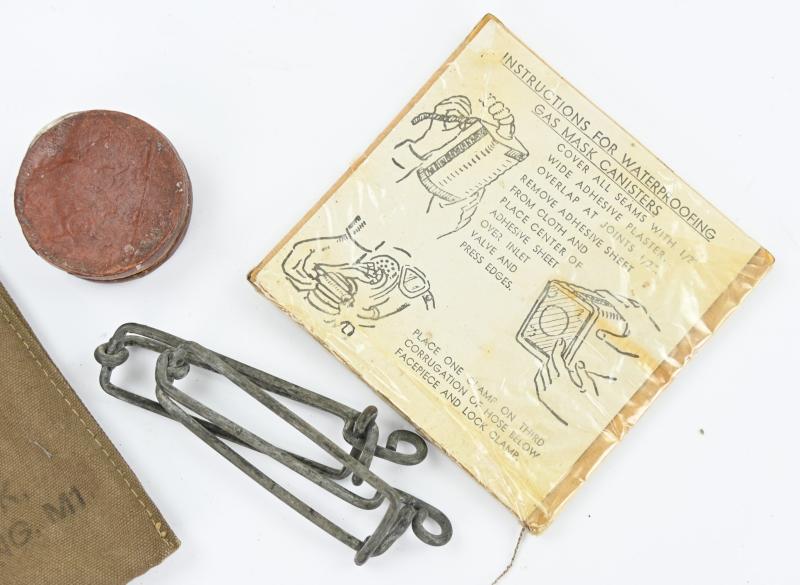 INSTRUCTIONS FOR WATERPROOFING
GAS MASK CANISTERS
COVER ALL SEAMS WITH 1/2"
WIDE ADHESIVE PLASTER.
OVERLAP AT JOINTS 1/2"
REMOVE ADHESIVE SHEET
FROM CLOTH AND
PLACE CENTER OF
ADHESIVE SHEET
OVER INLET
VALVE AND
PRESS EDGES.
PLACE ONE CLAMP ON THIRD
CORRUGATION OF HOSE BELOW
FACEPIECE AND LOCK CLAMP.
K.
NG. M1.